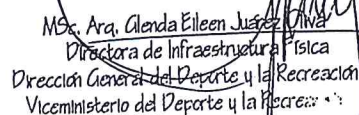 MSc. Arq. Glenda Eileen Juárez Oliva
Directora de Infraestructura Física
Dirección General del Deporte y la Recreación
Viceministerio del Deporte y la Recrea